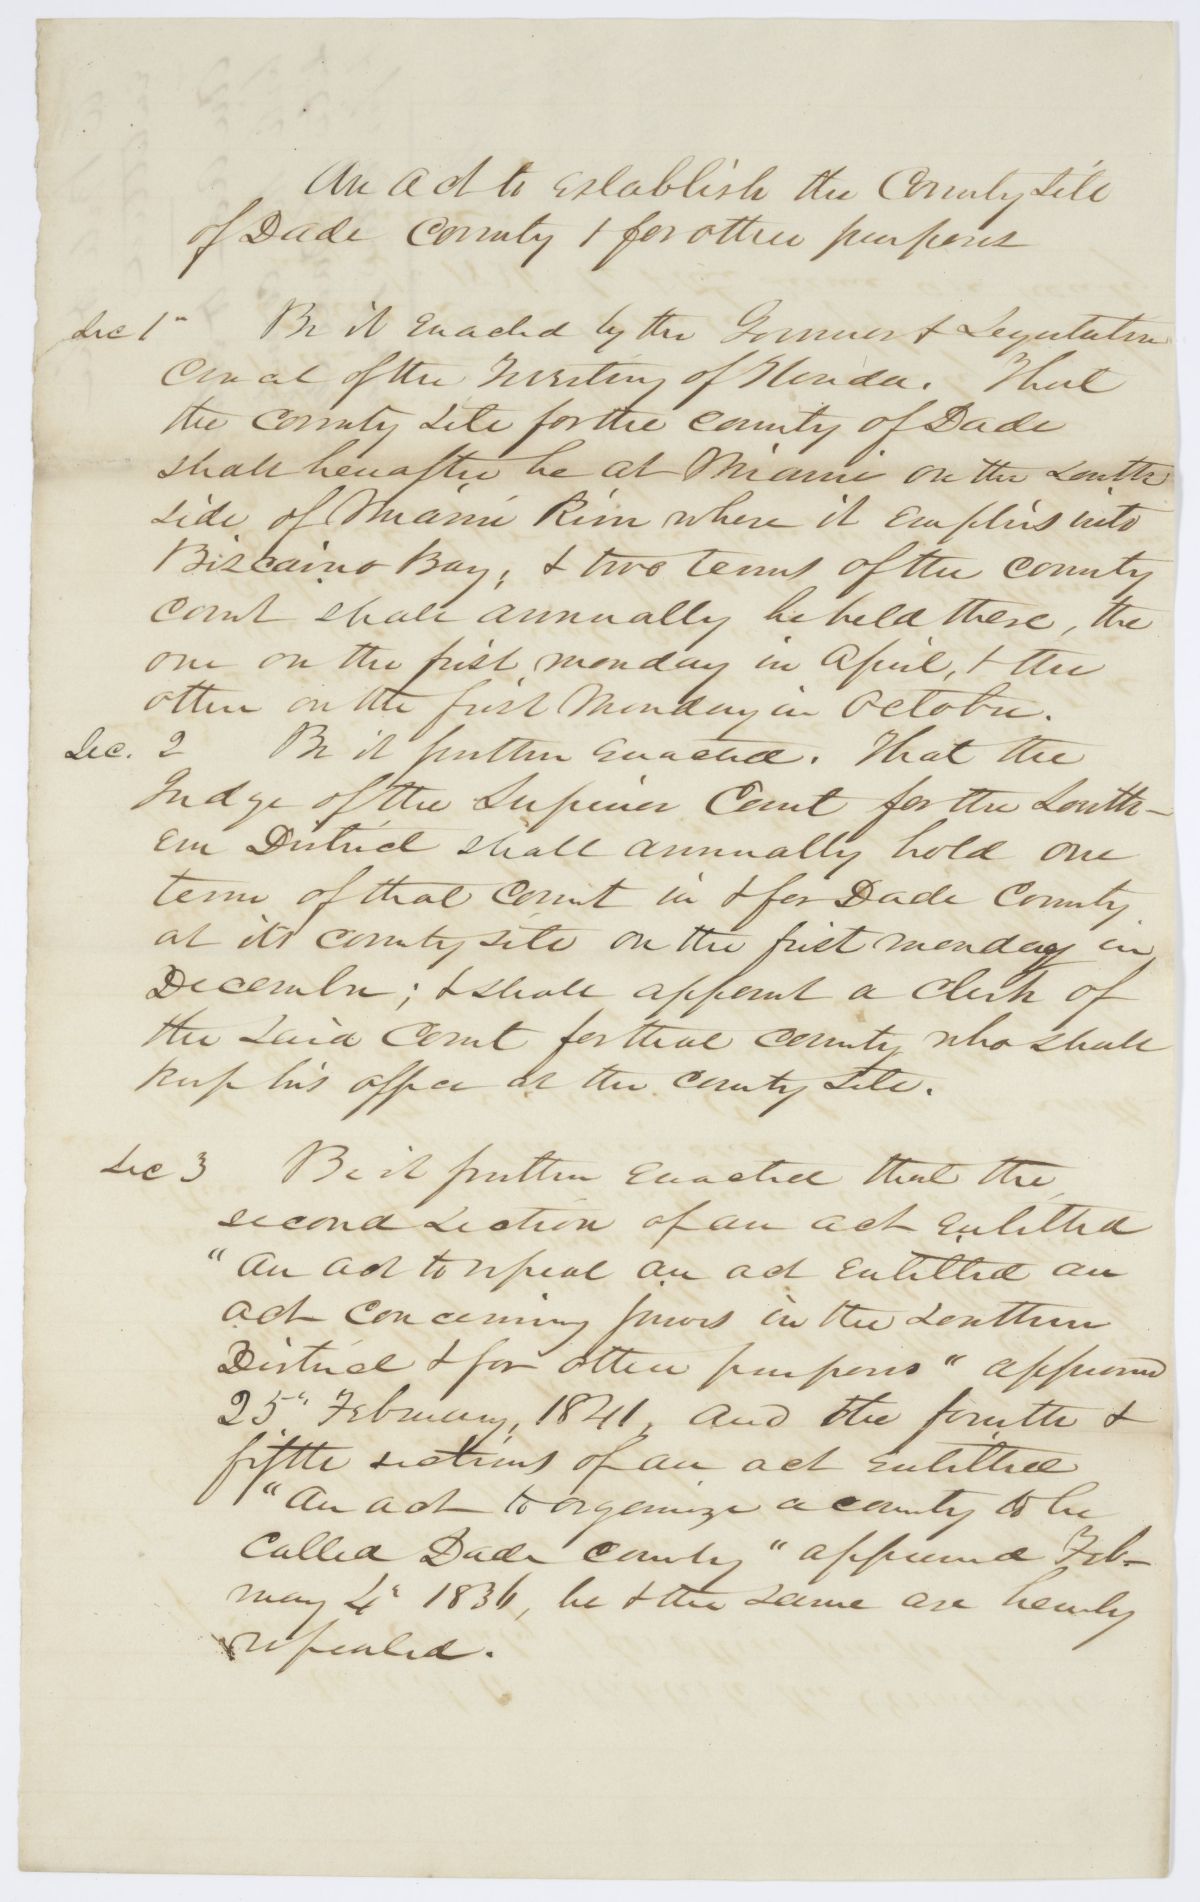 An Act to Establish the County Site
of Dade County & for other purposes
Sec 1st Be it Enacted by the Governor & Legislative
Concal of the Territory of Florida. That
the County Site for the County of Dade
shall hereafter be at Miami on the South
side of Miami River where it Empties into
Biscaino Bay, & two terms of the County
Court shall annually be held there, the
one on the first monday in April, & the
other on the first Monday in October.
Sec. 2 Be it further Enacted. That the
Judge of the Superior Court for the South-
ern District shall annually hold one
term of that Court in & for Dade County
at its county site on the first monday in
December; & shall appoint a clerk of
the said Court for that county who shall
keep his office at the county site.
Sec 3 Be it further Enacted that the
second section of an act Entitled
"An act to repeal an act Entitled an
act concerning jurors in the Southern
District & for other purposes" approved
25th February, 1841, and the fourth &
fifth sections of an act entitled
"An act to organize a county to be
called Dade County" approved Feb-
ruary 4th 1836, be & the same are hereby
repealed.